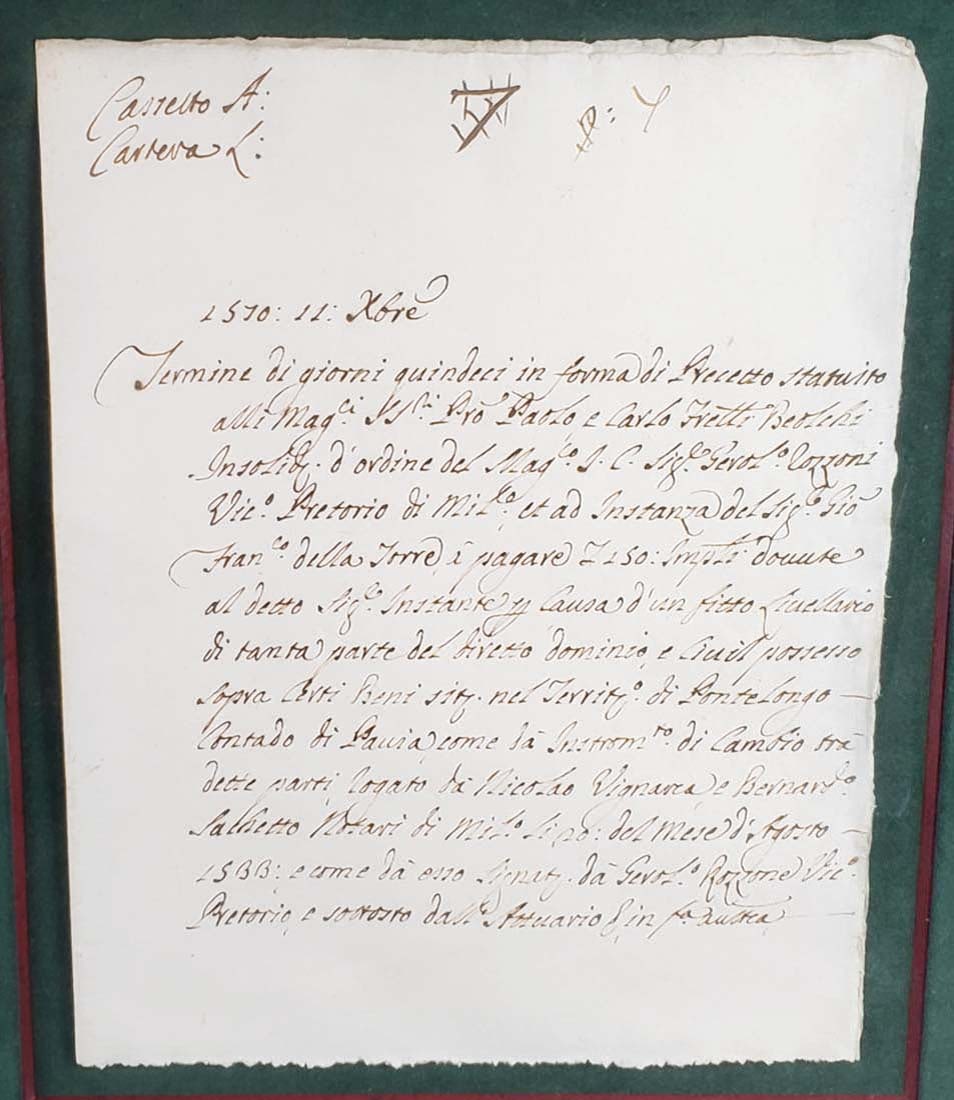 Cassetto A:
Cartera L:
N: 4
1570: 11: Xbre
Termine di giorni quindeci in forma di Precetto statuito
alli Mag.ci SS.ri Pro Paolo, e Carlo Fretti Beolchi
Insolid. d'ordine del Mag.co J. C. Sig.r Gerol.o Rozzoni
Vic.o Pretorio di Mil.o, et ad Instanza del Sig.r Gio
Fran.co della Torre, à pagare £ 150: Impli. douute
al detto Sig.r Instante p Causa d'un fitto Liuellario
di tanta parte del diretto dominio, e Ciuil possesso
sopra Certi Beni sit. nel Territ.o di Pontelongo —
Contado di Pauia, come dà Instrom.to di Cambio trà
dette parti, rogato dà Nicolao Vignarca, e Bernard.o
Salhetto Notari di Mil.o li 20: del Mese d'Agosto —
1533: e come dà esso Signat. dà Gerol.o Rozzone Vic.o
Pretorio, e sottosto dall' Attuario &, in f.a autca —